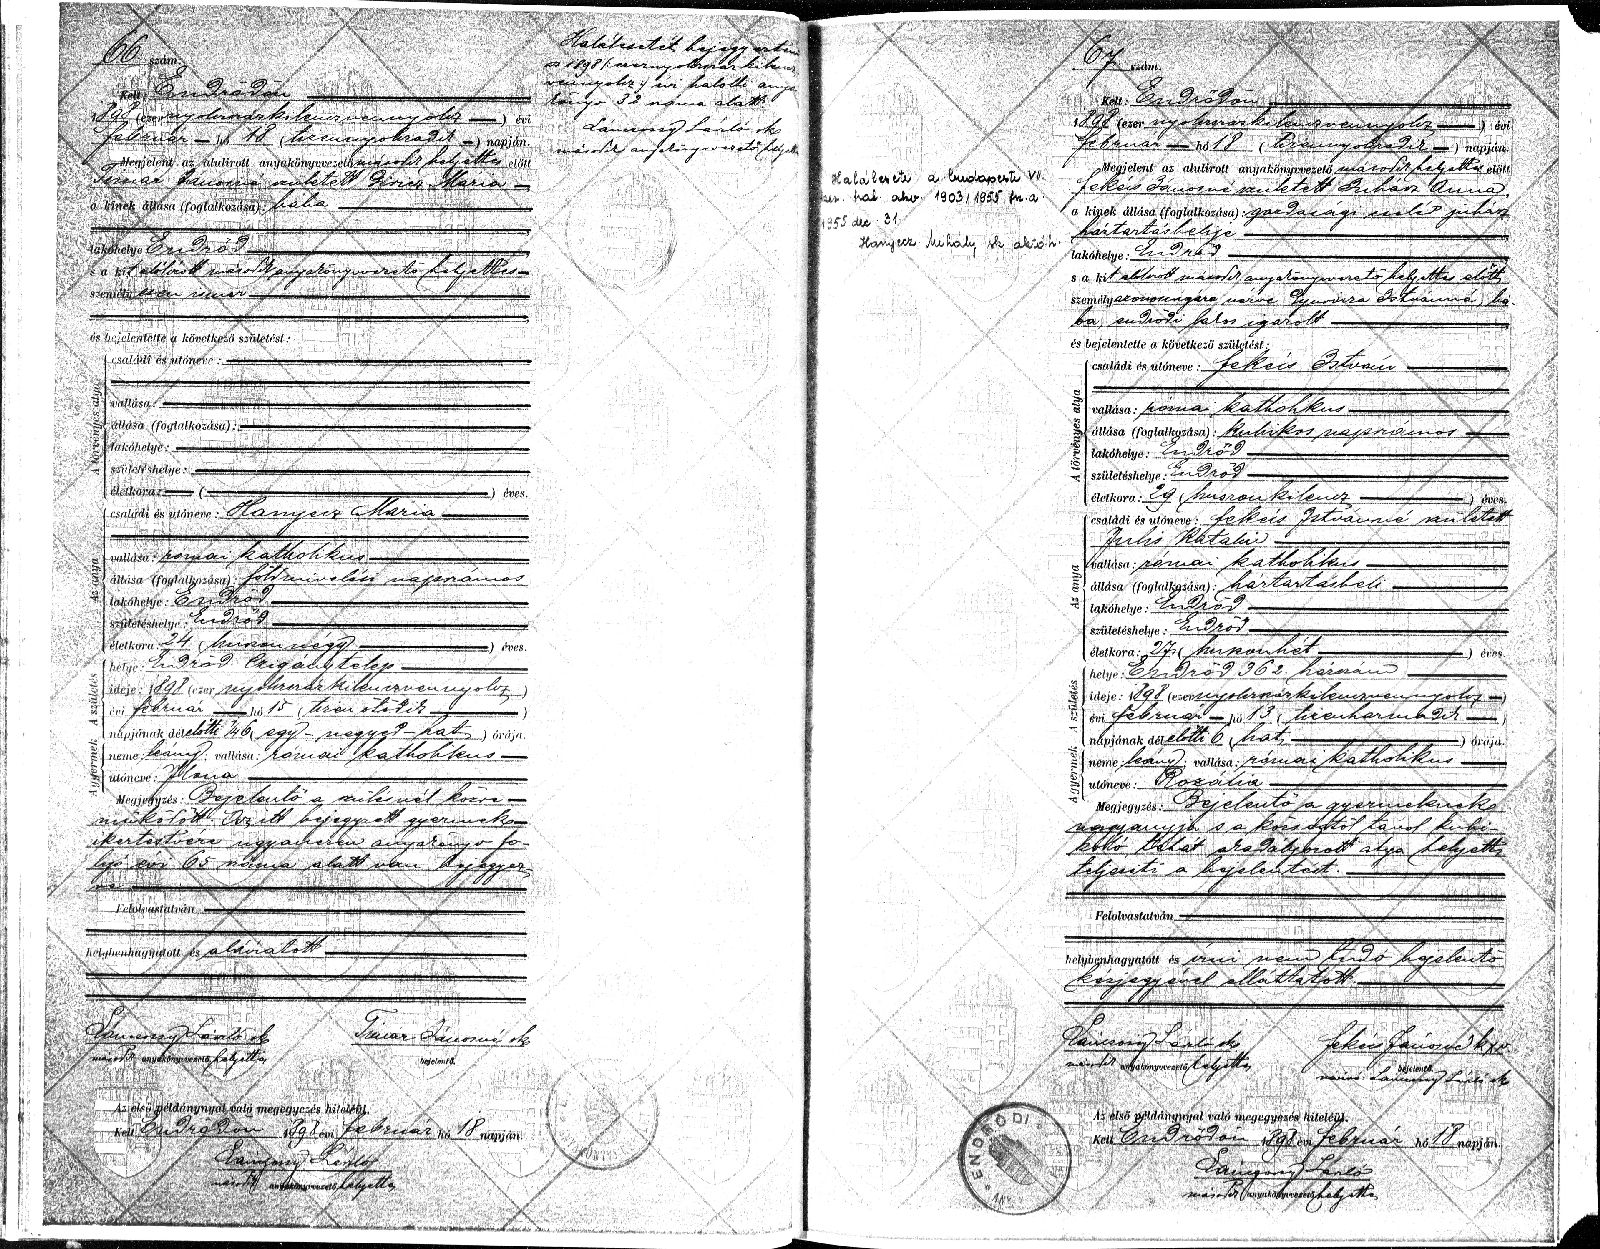 66 szám.
Kelt: Endrődön
1898 (ezer nyolcszázkilencvennyolcz) évi
február hó 18 (tizennyolcadik) napján.
Megjelent az alulirott anyakönyvvezető második helyettes előtt
Timar Jánosné született Maria
a kinek állása (foglalkozása): bába
lakóhelye Endrőd
s a kit alólirott második anyakönyvvezető helyettes
személyesen ismer
és bejelentette a következő születést:
A törvényes atya
családi és utóneve:
vallása:
állása (foglalkozása):
lakóhelye:
születéshelye:
életkora: ( ) éves.
Az anya
családi és utóneve: Hanyecz Maria
vallása: római katholikus
állása (foglalkozása): földmivelési napszámos
lakóhelye: Endrőd
születéshelye: Endrőd
életkora: 24 (huszonnégy) éves.
A születés
helye: Endrőd Czigánytelep
ideje: 1898 (ezer nyolcszázkilencvennyolcz)
évi február hó 15 (tizenötödik)
napjának délelőtti 1/46 (egy negyed hat) órája.
A gyermek
neme: leány; vallása: római katholikus
utóneve: Ilona
Megjegyzés: Bejelentő a szülésnél közre
működött. Az itt bejegyzett gyermek
ikertestvére ugyanezen anyakönyv fo-
lyó évi 65 száma alatt van bejegyez
ve.
Felolvastatván,
helybenhagyatott és aláiratott
László sk
második anyakönyvvezető helyettes
Timar Jánosné sk
bejelentő.
Az első példánynyal való megegyezés hiteléül.
Kelt Endrődön 1898 évi február hó 18 napján.
László
második anyakönyvvezető helyettes
Halálesetét bejegyeztem
az 1898 (ezernyolcszázkilencz
vennyolcz) évi halotti anya
könyv 32 száma alatt
László sk
második anyakönyvvezető helyettes
67 szám.
Kelt: Endrődön
1898 (ezer nyolcszázkilencvennyolcz) évi
február hó 18 (tizennyolcadik) napján.
Megjelent az alulirott anyakönyvvezető második helyettes előtt
Fekeis Jánosné született Juhász Anna,
a kinek állása (foglalkozása): gazdasági juhász
háztartásbelije
lakóhelye: Endrőd
s a kit alólirott második anyakönyvvezető helyettes előtt
személyazonosságára nézve Istvánné, bá-
ba, endrődi lakos igazolt
és bejelentette a következő születést:
A törvényes atya
családi és utóneve: Fekeis István
vallása: római katholikus
állása (foglalkozása): kubikos napszámos
lakóhelye: Endrőd
születéshelye: Endrőd
életkora: 29 (huszonkilencz) éves.
Az anya
családi és utóneve: Fekeis Istvánné született
Katalin
vallása: római katholikus
állása (foglalkozása): háztartásbeli
lakóhelye: Endrőd
születéshelye: Endrőd
életkora: 27 (huszonhét) éves
A születés
helye: Endrőd 362. házszám
ideje: 1898 (ezer nyolcszázkilencvennyolcz)
évi február hó 13 (tizenharmadik)
napjának délelőtti 6 (hat) órája.
A gyermek
neme: leány; vallása: római katholikus
utóneve: Rozália
Megjegyzés: Bejelentő a gyermeknek
nagyanyja s a községtől távol kubi-
koló tehát akadályozott atya helyett
teljesiti a bejelentést.
Felolvastatván,
helybenhagyatott és irni nem tudó bejelentő
kézjegyével elláttatott.
László sk
második anyakönyvvezető helyettes
Fekeis Jánosné k x v.
bejelentő.
László sk
Az első példánynyal való megegyezés hiteléül.
Kelt Endrődön 1898 évi február hó 18 napján.
László
második anyakönyvvezető helyettes
Halálesete a budapesti VII.
ker. hal. akv. 1903/1955 fsz. a.
1955 dec. 31.
Hanyecz Mihály sk akv. h.
ENDRŐDI